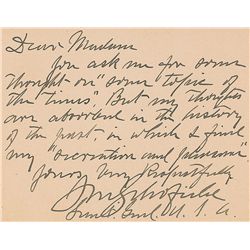 Dear Madam
You ask me for some
thought on "some topic of
the times". But my thoughts
are absorbed in the history
of the past, in which I find
my "recreation and
Yours Very Respectfully
J M Schofield
Lieut. Genl. U. S. A.